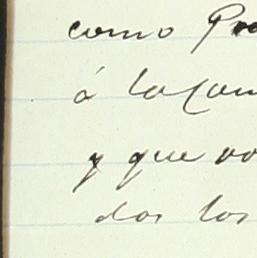 como Pre
á la Com
y que no
dos los